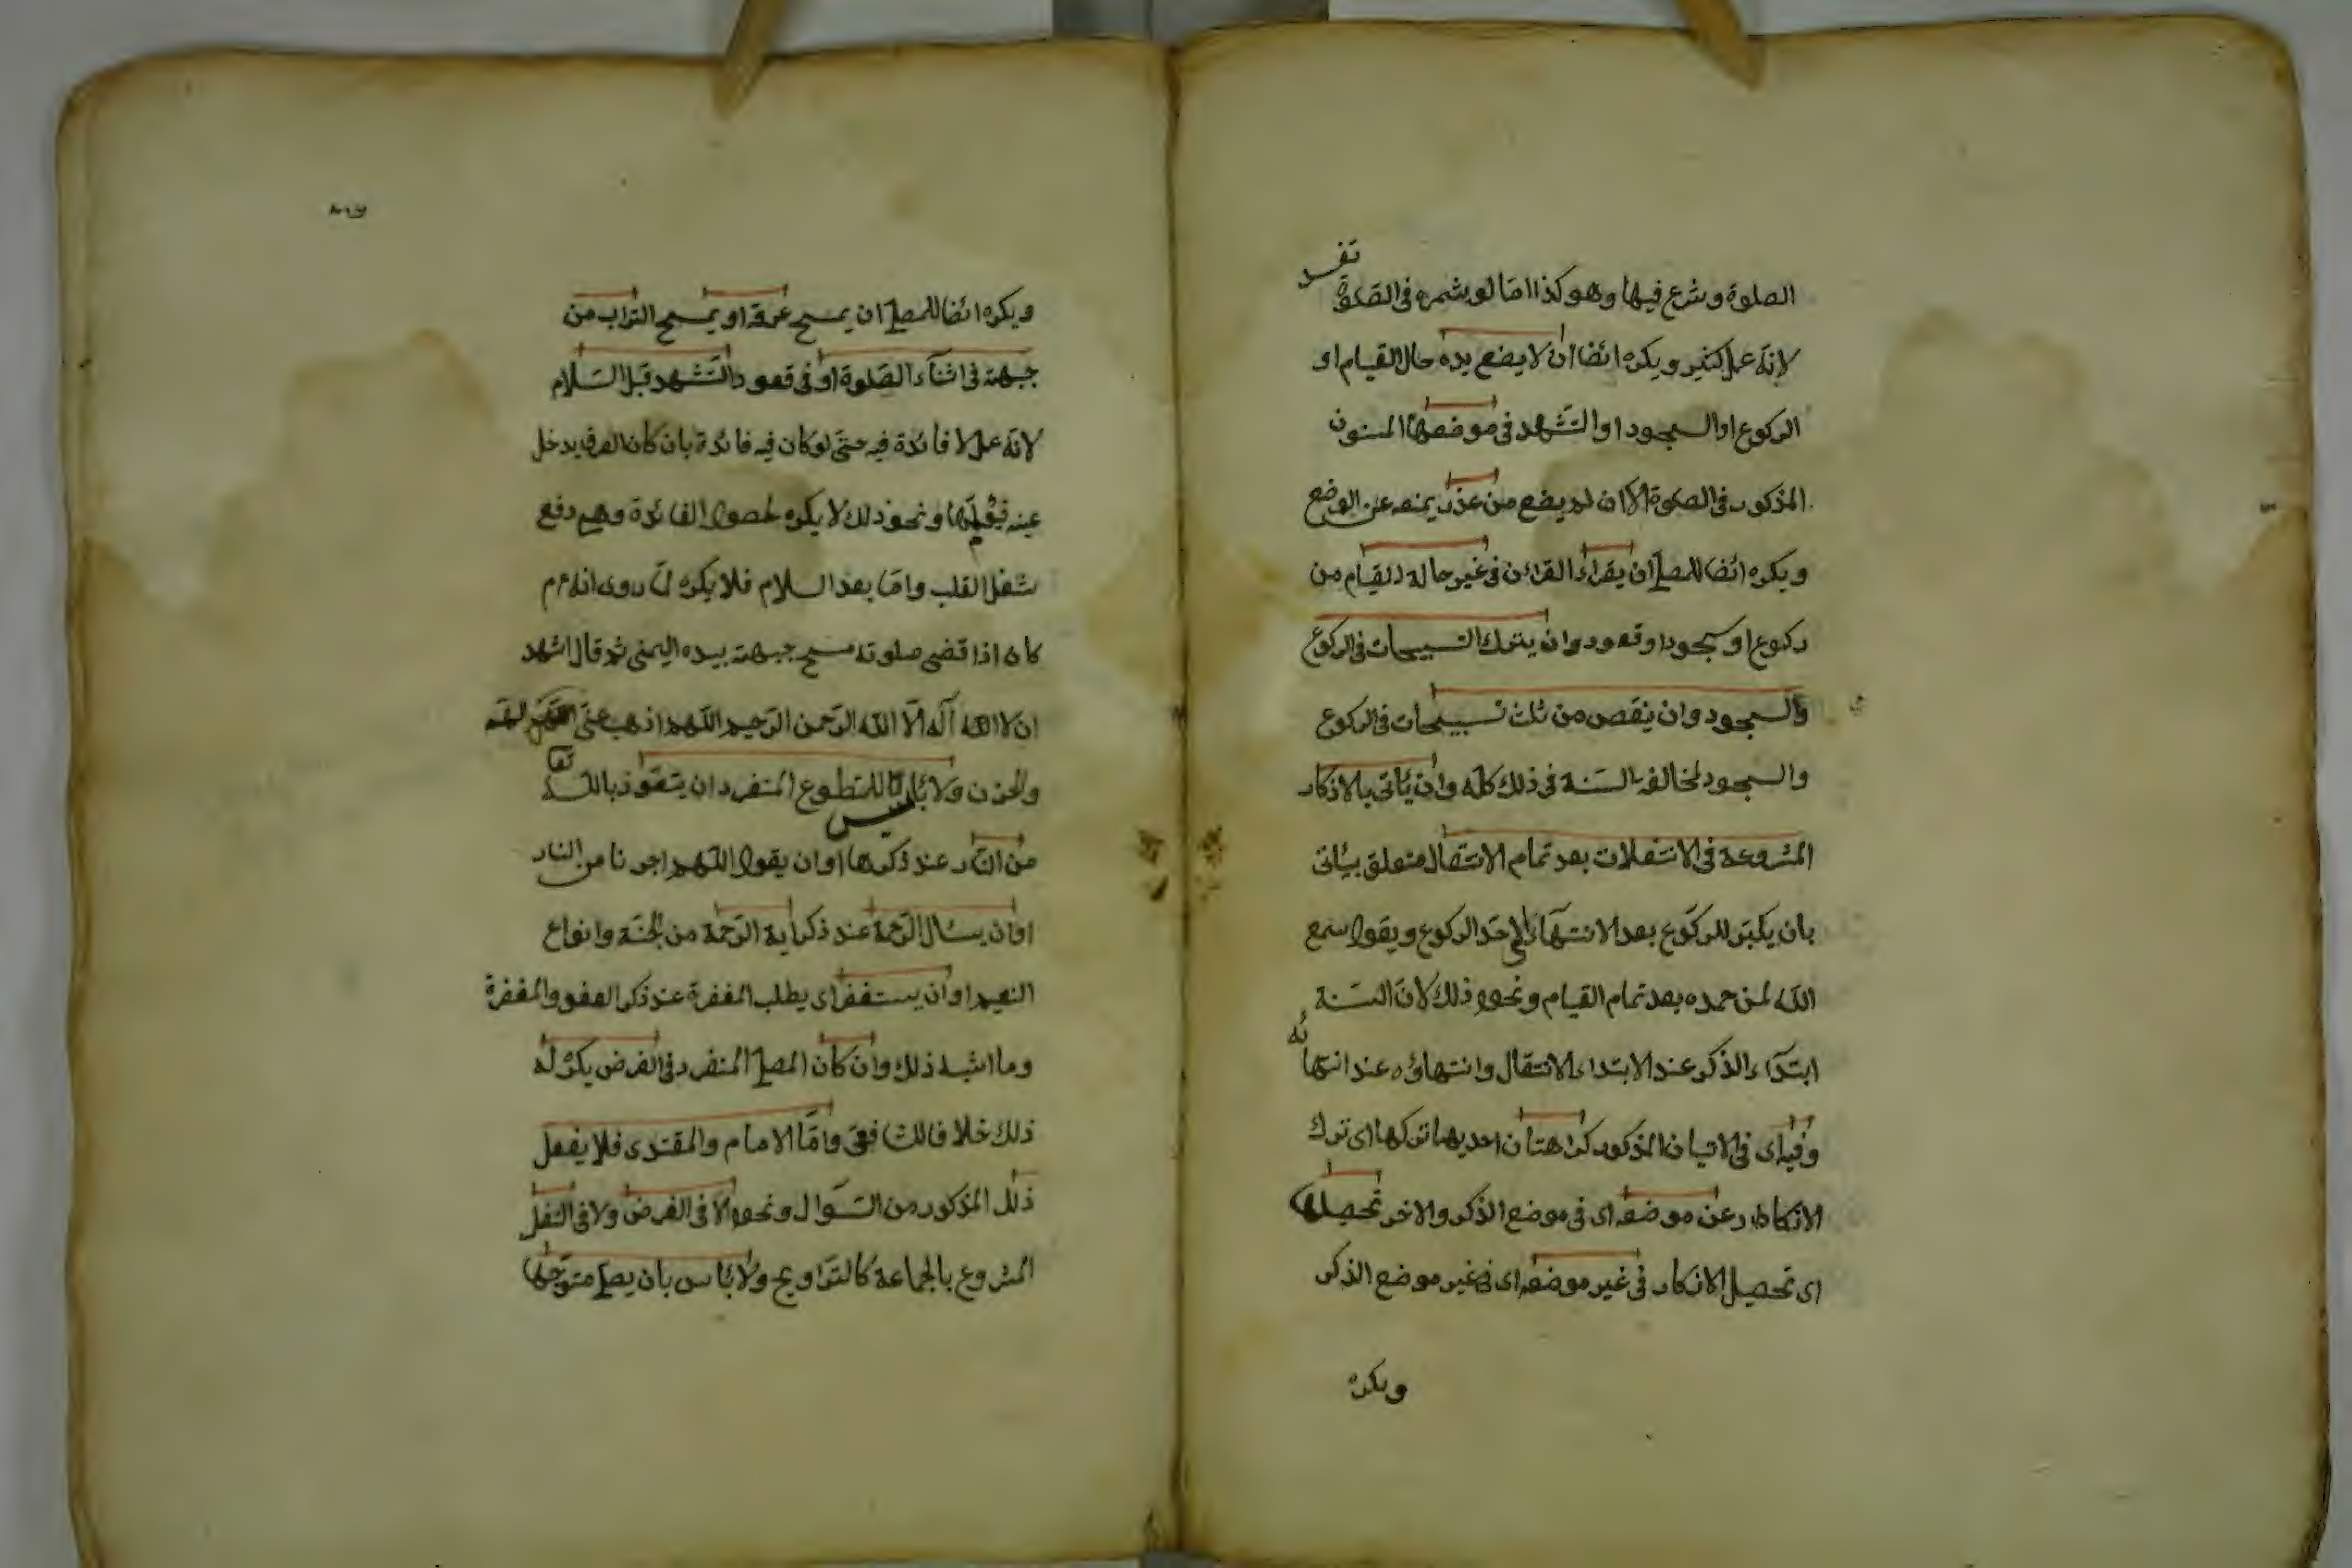 الصلوة وشرع فيها وهو كذا امّا لو شمره فى الصلوة تفسد
لانّه عمل كثير ويكره ائضا ان لا يضع يده حال القيام او
الركوع او السجود او التّشهد فى موضعها المسنون
المذكور فى الصلوة الا ان لم يضع من عذر يمنعه عن الوضع
ويكره ائضا للمصلى ان يقراء القرائن فى غير حالة القيام من
ركوع او سجود او قعود وان يترك التسبيحات فى الركوع
والسجود وان ينقص من ثلث تسبيحات فى الركوع
والسجود لمخالفة السّنة فى ذلك كلّه وان يئاتى بالاذكار
المشروعة فى الانتقلات بعد تمام الانتقال متعلق بيئاتى
بان يكبّر للركوع بعد الانتهاء الى حدّ الركوع ويقول سمع
اللّه لمن حمده بعد تمام القيام ونحو ذلك لانّ السّنة
ابتدآء الذكر عند الابتداء الانتقال وانتهاؤه عند انتهائه
وفيه اى فى الاتيان المذكور كراهتان احديهما تركها اى ترك
الاذكار عن موضعه اى فى موضع الذكر والاخر تحصيلها
اى تحصيل الاذكار فى غير موضعه اى فى غير موضع الذكر
ويكره
ويكره ائضا للمصلى ان يمسح عرقه او يمسح التراب من
جبهته فى اثنآء الصّلوة او فى قعود التّشهد قبل السّلام
لانّه عمل لا فائدة فيه حتّى لو كان فيه فائدة بان كان العرق يدخل
عينه فيؤلمها ونحو ذلك لا يكره لحصول الفائدة وهى دفع
شغل القلب وامّا بعد السلام فلا يكره لمّا روى انه عم
كان اذا قضى صلوته مسح جبهته بيده اليمنى ثم قال اشهد
ان لا اله الّا اللّه الرّحمن الرّحيم اللّهم اذهب عنّى الهمّ
والحزن ولا بئاس للمتطوع المنفرد ان يتعوّذ باللّه تعا
من النّار عند ذكرها او ان يقول اللّهم اجرنا من النار
او ان يسئال الرّحمة عند ذكر اية الرّحمة من الجنّة وانواع
النعيم او ان يستغفر اى يطلب المغفرة عند ذكر العفو والمغفرة
وما اشبه ذلك وان كان المصلى المنفرد فى الفرض يكره له
ذلك خلافا للشافعى وامّا الامام والمقتدى فلا يفعل
ذلك المذكور من السّوال ونحوه لا فى الفرض ولا فى النّفل
المشروع بالجماعة كالتّراويح ولا بئاس بان يصلى متوجّها